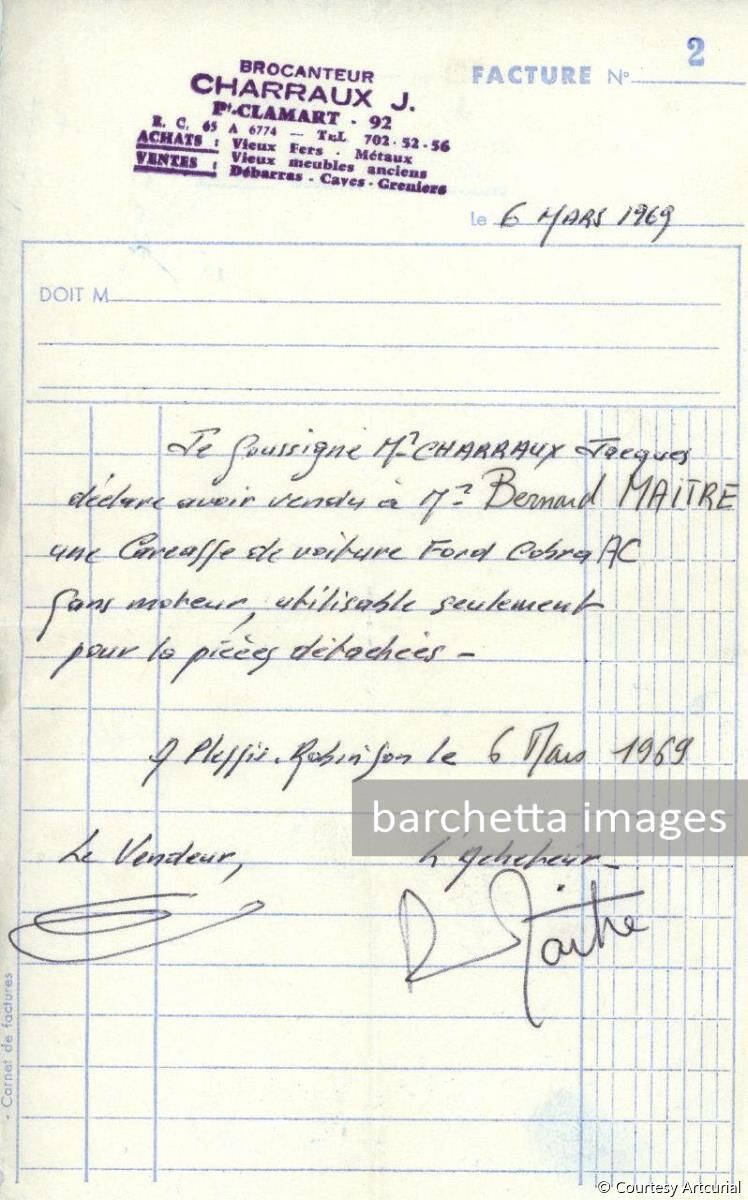 BROCANTEUR
CHARRAUX J.
Pt-CLAMART - 92
R. C. 65 A 6774 — Tel. 702-52-56
ACHATS : Vieux Fers - Métaux
VENTES : Vieux meubles anciens
Débarras - Caves - Greniers
FACTURE No 2
Le 6 MARS 1969
DOIT M
Je soussigné Mr CHARRAUX Jacques
déclare avoir vendu à Mr Bernard MAITRE
une Carcasse de voiture Ford Cobra AC
sans moteur, utilisable seulement
pour la pièces détachées -
A Plessis-Robinson le 6 Mars 1969
barchetta images
Le Vendeur, L'Acheteur -
Maitre
- Carnet de factures
© Courtesy Artcurial